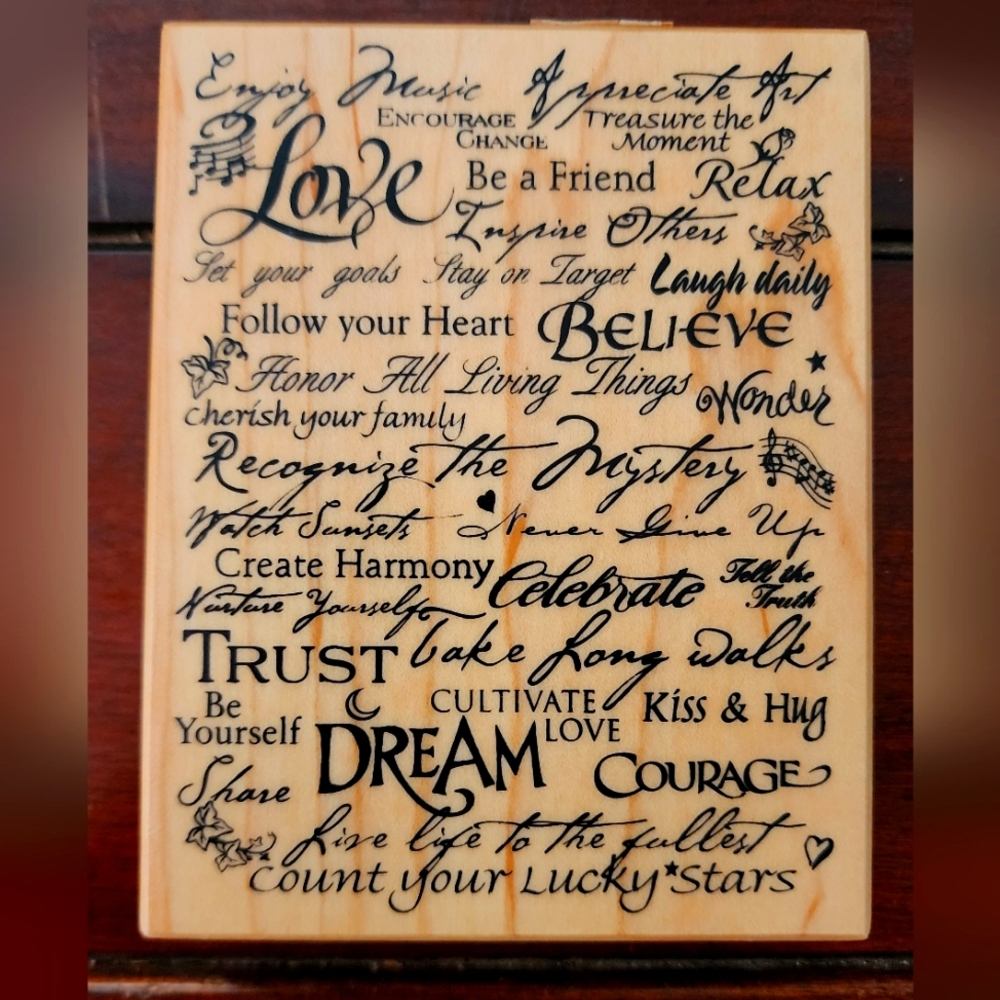 Enjoy Music Appreciate Art
Encourage Change
Treasure the Moment
Love
Be a Friend
Relax
Inspire Others
Set your goals Stay on Target Laugh daily
Follow your Heart BELIEVE
Honor All Living Things Wonder
Cherish your family
Recognize the Mystery
Watch Sunsets Never Give Up
Create Harmony Celebrate Tell the Truth
Nurture Yourself
TRUST Take Long walks
Be Yourself
DREAM
CULTIVATE LOVE
Kiss & Hug
Share
COURAGE
Live life to the fullest
Count your Lucky Stars